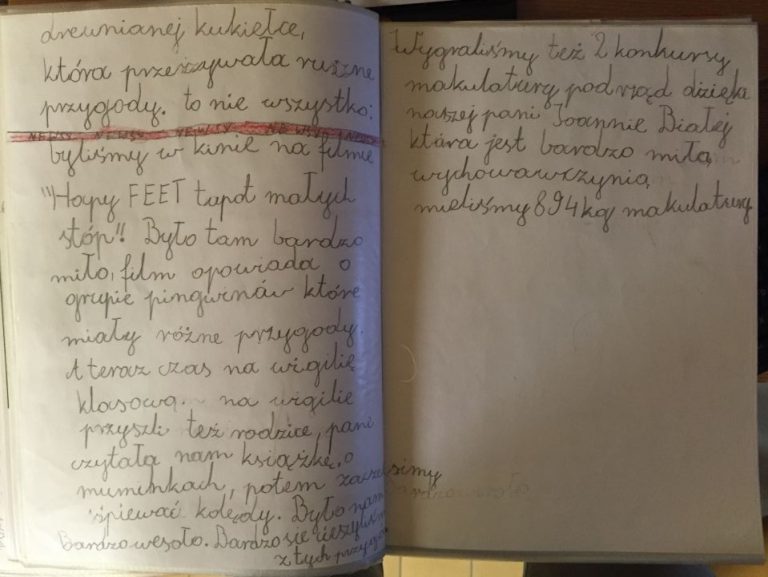 drewnianej kukiełce,
która przeżywała różne
przygody. to nie wszystko:
NEWSY NEWSY NEWSY NEWSY NEWSY
byliśmy w kinie na filmie
"Hapy FEET tupot małych
stóp". Było tam bardzo
miło, film opowiada o
grupie pingwinów które
miały różne przygody.
A teraz czas na wigilię
klasową. na wigilie
przyszli też rodzice, pani
czytała nam książkę, o
muminkach, potem zaczeliśmy
śpiewać kolędy. Było nam
Bardzo wesoło. Bardzo się cieszyliśmy
z tych przygód
Wygraliśmy też 2 konkursy
makulatury pod rząd dzięka
naszej pani Joannie Białej
która jest bardzo miłą
wychowawczynią
mieliśmy 894 kg makulatury